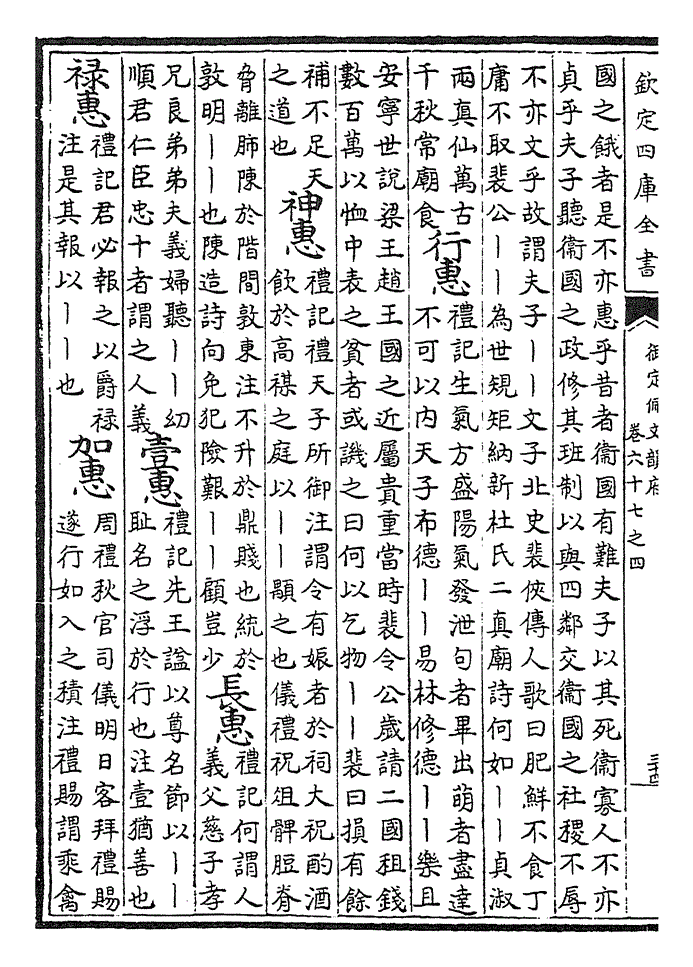 欽定四庫全書
御定佩文韻府
卷六十七之四
三十四
國之餓者是不亦惠乎昔者衞國有難夫子以其死衞寡人不亦
貞乎夫子聽衞國之政修其班制以與四鄰交衞國之社稷不辱
不亦文乎故謂夫子丨丨文子北史裴俠傳人歌曰肥鮮不食丁
庸不取裴公丨丨為世規矩納新杜氏二真廟詩何如丨丨貞淑
兩真仙萬古
千秋常廟食
行惠
禮記生氣方盛陽氣發泄句者畢出萌者盡達
不可以內天子布德丨丨易林修德丨丨樂且
安寧世說梁王趙王國之近屬貴重當時裴令公歲請二國租錢
數百萬以恤中表之貧者或譏之曰何以乞物丨丨裴曰損有餘
補不足天
之道也
神惠
禮記禮天子所御注謂令有娠者於祠大祝酌酒
飲於高禖之庭以丨丨顯之也儀禮祝俎髀脰脊
脅離肺陳於階間敦東注不升於鼎賤也統於
敦明丨丨也陳造詩向免犯險艱丨丨顧豈少
長惠
禮記何謂人
義父慈子孝
兄良弟弟夫義婦聽丨丨幼
順君仁臣忠十者謂之人義
壹惠
禮記先王諡以尊名節以丨丨
恥名之浮於行也注壹猶善也
祿惠
禮記君必報之以爵祿
注是其報以丨丨也
加惠
周禮秋官司儀明日客拜禮賜
遂行如入之積注禮賜謂乘禽